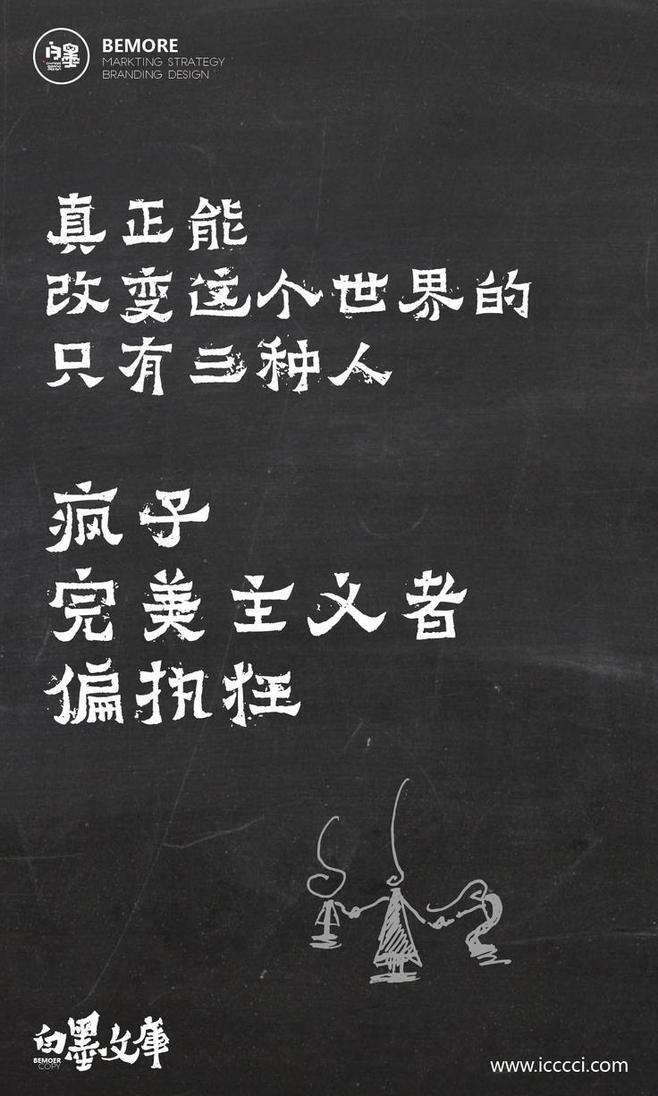 白墨
BEMORE
MARKTING STRATEGY
BRANDING DESIGN
真正能
改变这个世界的
只有三种人
疯子
完美主义者
偏执狂
白墨文库
BEMOER
COPY
www.icccci.com